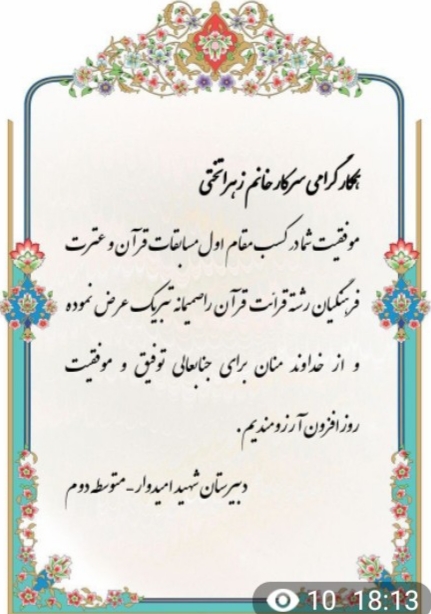 همکار گرامی سرکار خانم زهرا تختی
موفقیت شما در کسب مقام اول مسابقات قرآن و عترت
فرهنگیان رشته قرائت قرآن را صمیمانه تبریک عرض نموده
و از خداوند منان برای جنابعالی توفیق و موفقیت
روز افزون آرزومندیم.
دبیرستان شهید امیدوار - متوسطه دوم
10 18:13